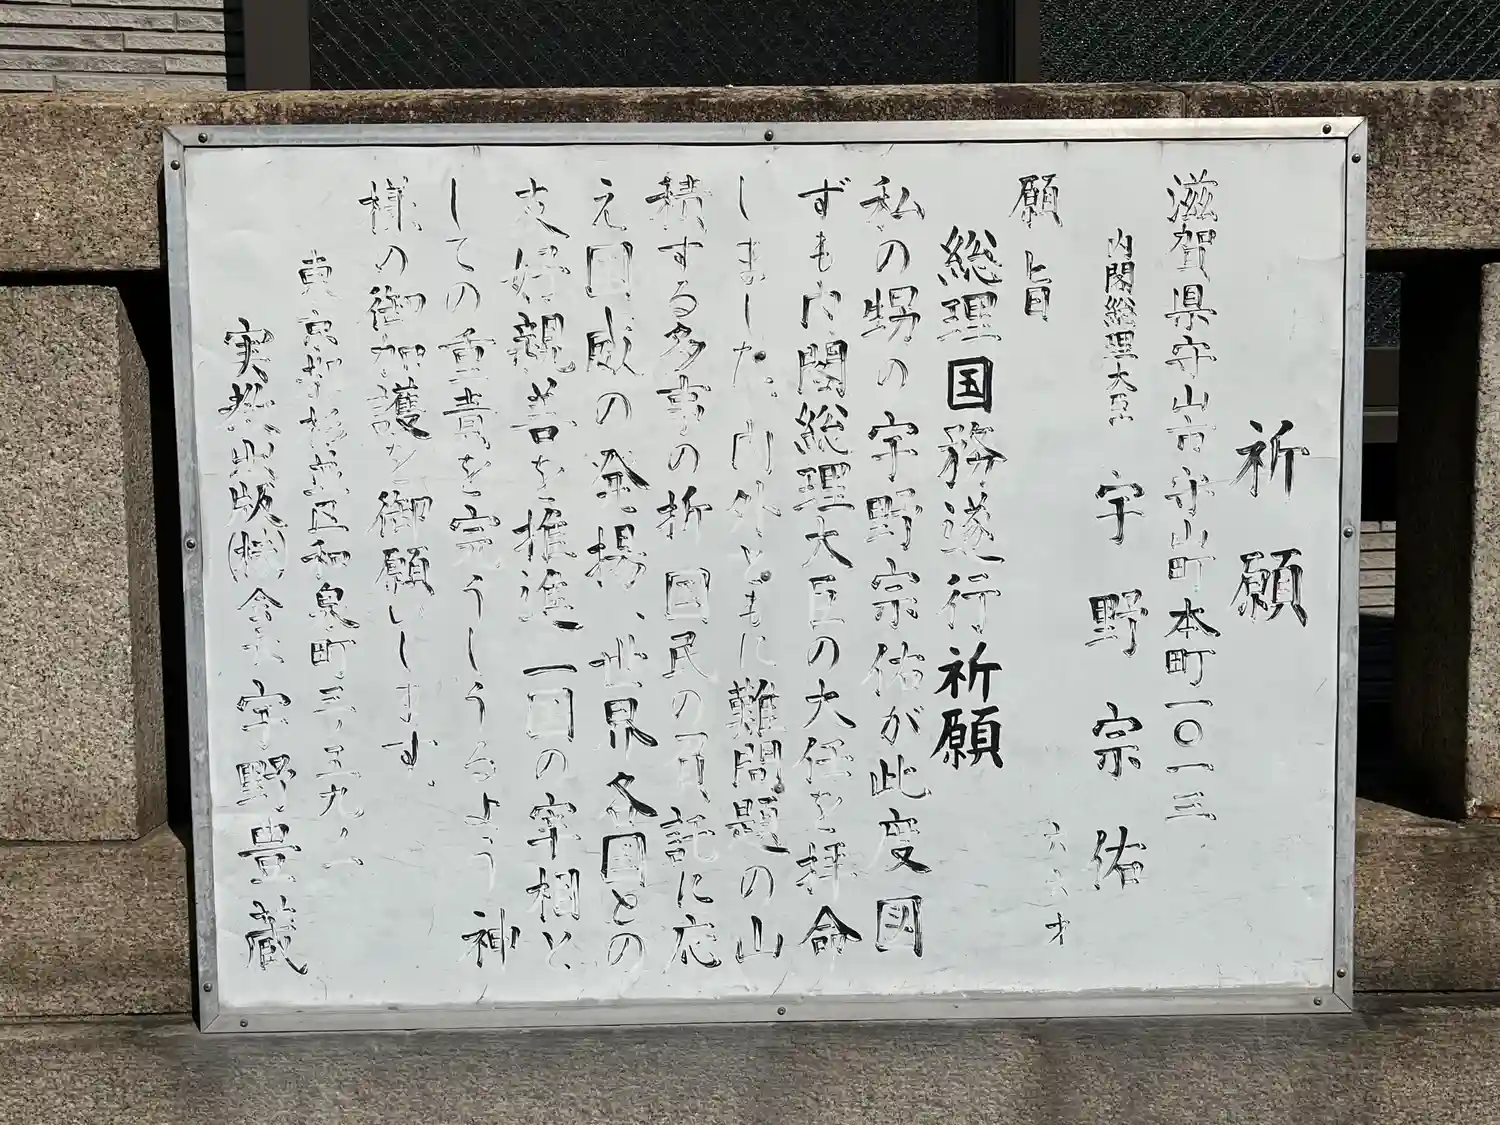 祈願
滋賀県守山市守山町本町一〇一三
内閣総理大臣 宇野宗佑
六六才
願旨
総理国務遂行祈願
私の甥の宇野宗佑が此度図
ずも内閣総理大臣の大任を拝命
しました。内外ともに難問題の山
積する多事の折 国民の負託に応
え国威の発揚、世界各国との
友好親善を推進 一国の宰相と
しての重責を完うしうるよう 神
様の御加護を御願いします。
東京都杉並区和泉町三ノ五九ノ一
実業出版㈱会長 宇野豊蔵